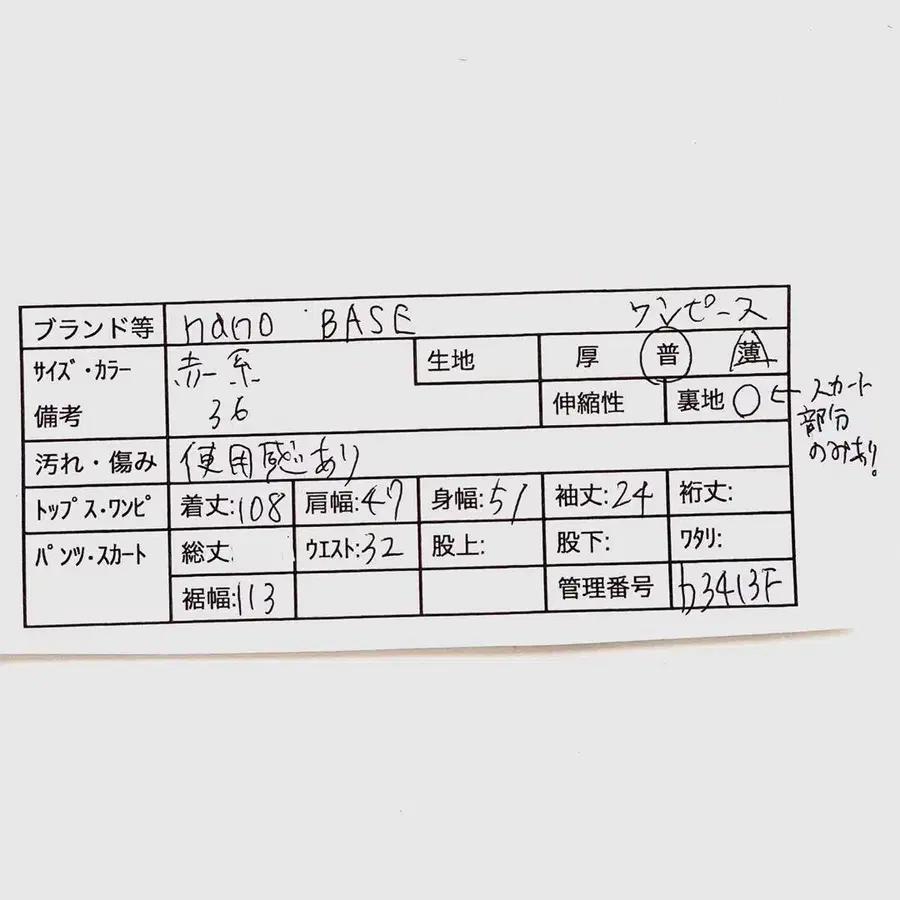 ブランド等 nano BASE ワンピース
サイズ・カラー 赤系 生地 厚 普 薄
備考 36 伸縮性 裏地 ○ ← スカート
部分
のみあり。
汚れ・傷み 使用感あり
トップス・ワンピ 着丈:108 肩幅:47 身幅:51 袖丈:24 裄丈:
パンツ・スカート 総丈: ウエスト:32 股上: 股下: ワタリ:
裾幅:113 管理番号 b3413F